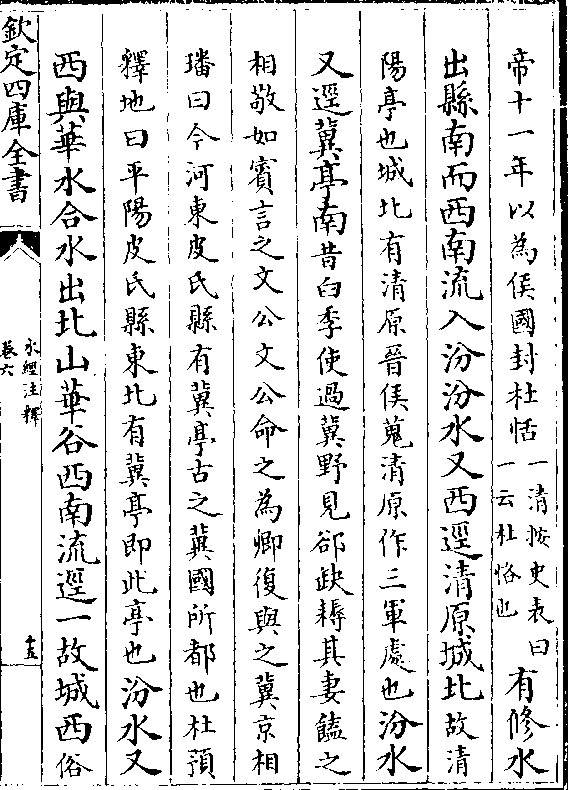 帝十一年以為侯國封杜恬一清按史表曰一云杜恪也有修水
出縣南而西南流入汾汾水又西逕清原城北故清
陽亭也城北有清原晉侯蒐清原作三軍處也汾水
又逕冀亭南昔臼季使過冀野見郤缺耨其妻饁之
相敬如賓言之文公文公命之為卿復與之冀京相
璠曰今河東皮氏縣有冀亭古之冀國所都也杜預
釋地曰平陽皮氏縣東北有冀亭即此亭也汾水又
西與華水合水出北山華谷西南流逕一故城西俗
欽定四庫全書
水經注釋
卷六
十五